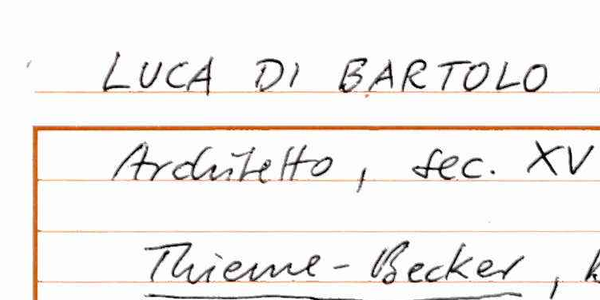 LUCA DI BARTOLO
Architetto, sec. XV
Thieme-Becker,